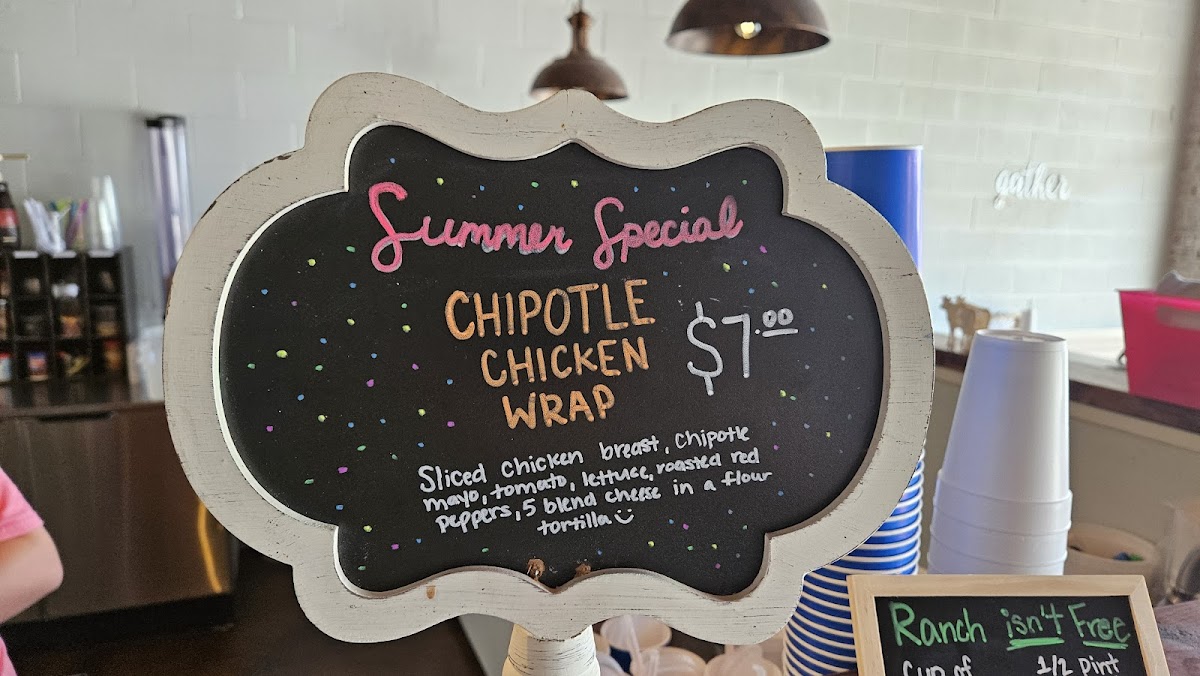 Summer Special
CHIPOTLE
CHICKEN
WRAP
$7.00
Sliced chicken breast, chipotle
mayo, tomato, lettuce, roasted red
peppers, 5 blend cheese in a flour
tortilla
gather
Ranch isn't Free
Cup of 1/2 pint